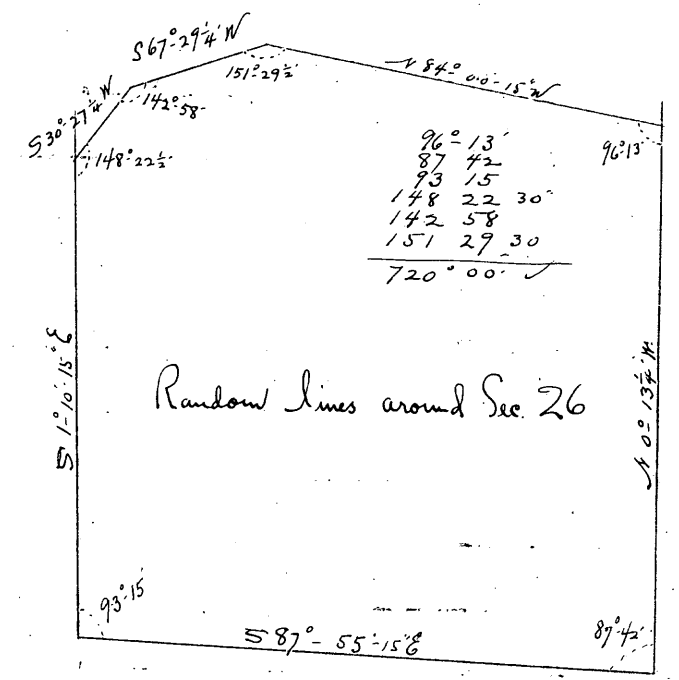 S 67°-29¼' W
N 84°-00'-15" W
151°-29½'
S 30°-27¼' W
142°-58'
148°-22½'
96°-13'
96°-13'
87 42
93 15
148 22 30
142 58
151 29 30
720° 00' ✓
S 1°-10'-15" E
Random lines around Sec. 26
N 0°-13¼' W.
93°-15'
S 87°-55'-15" E
87°-42'